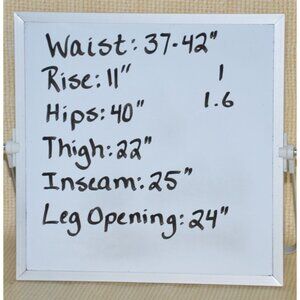 Waist: 37-42"
Rise: 11"
1
Hips: 40"
1.6
Thigh: 22"
Inseam: 25"
Leg Opening: 24"